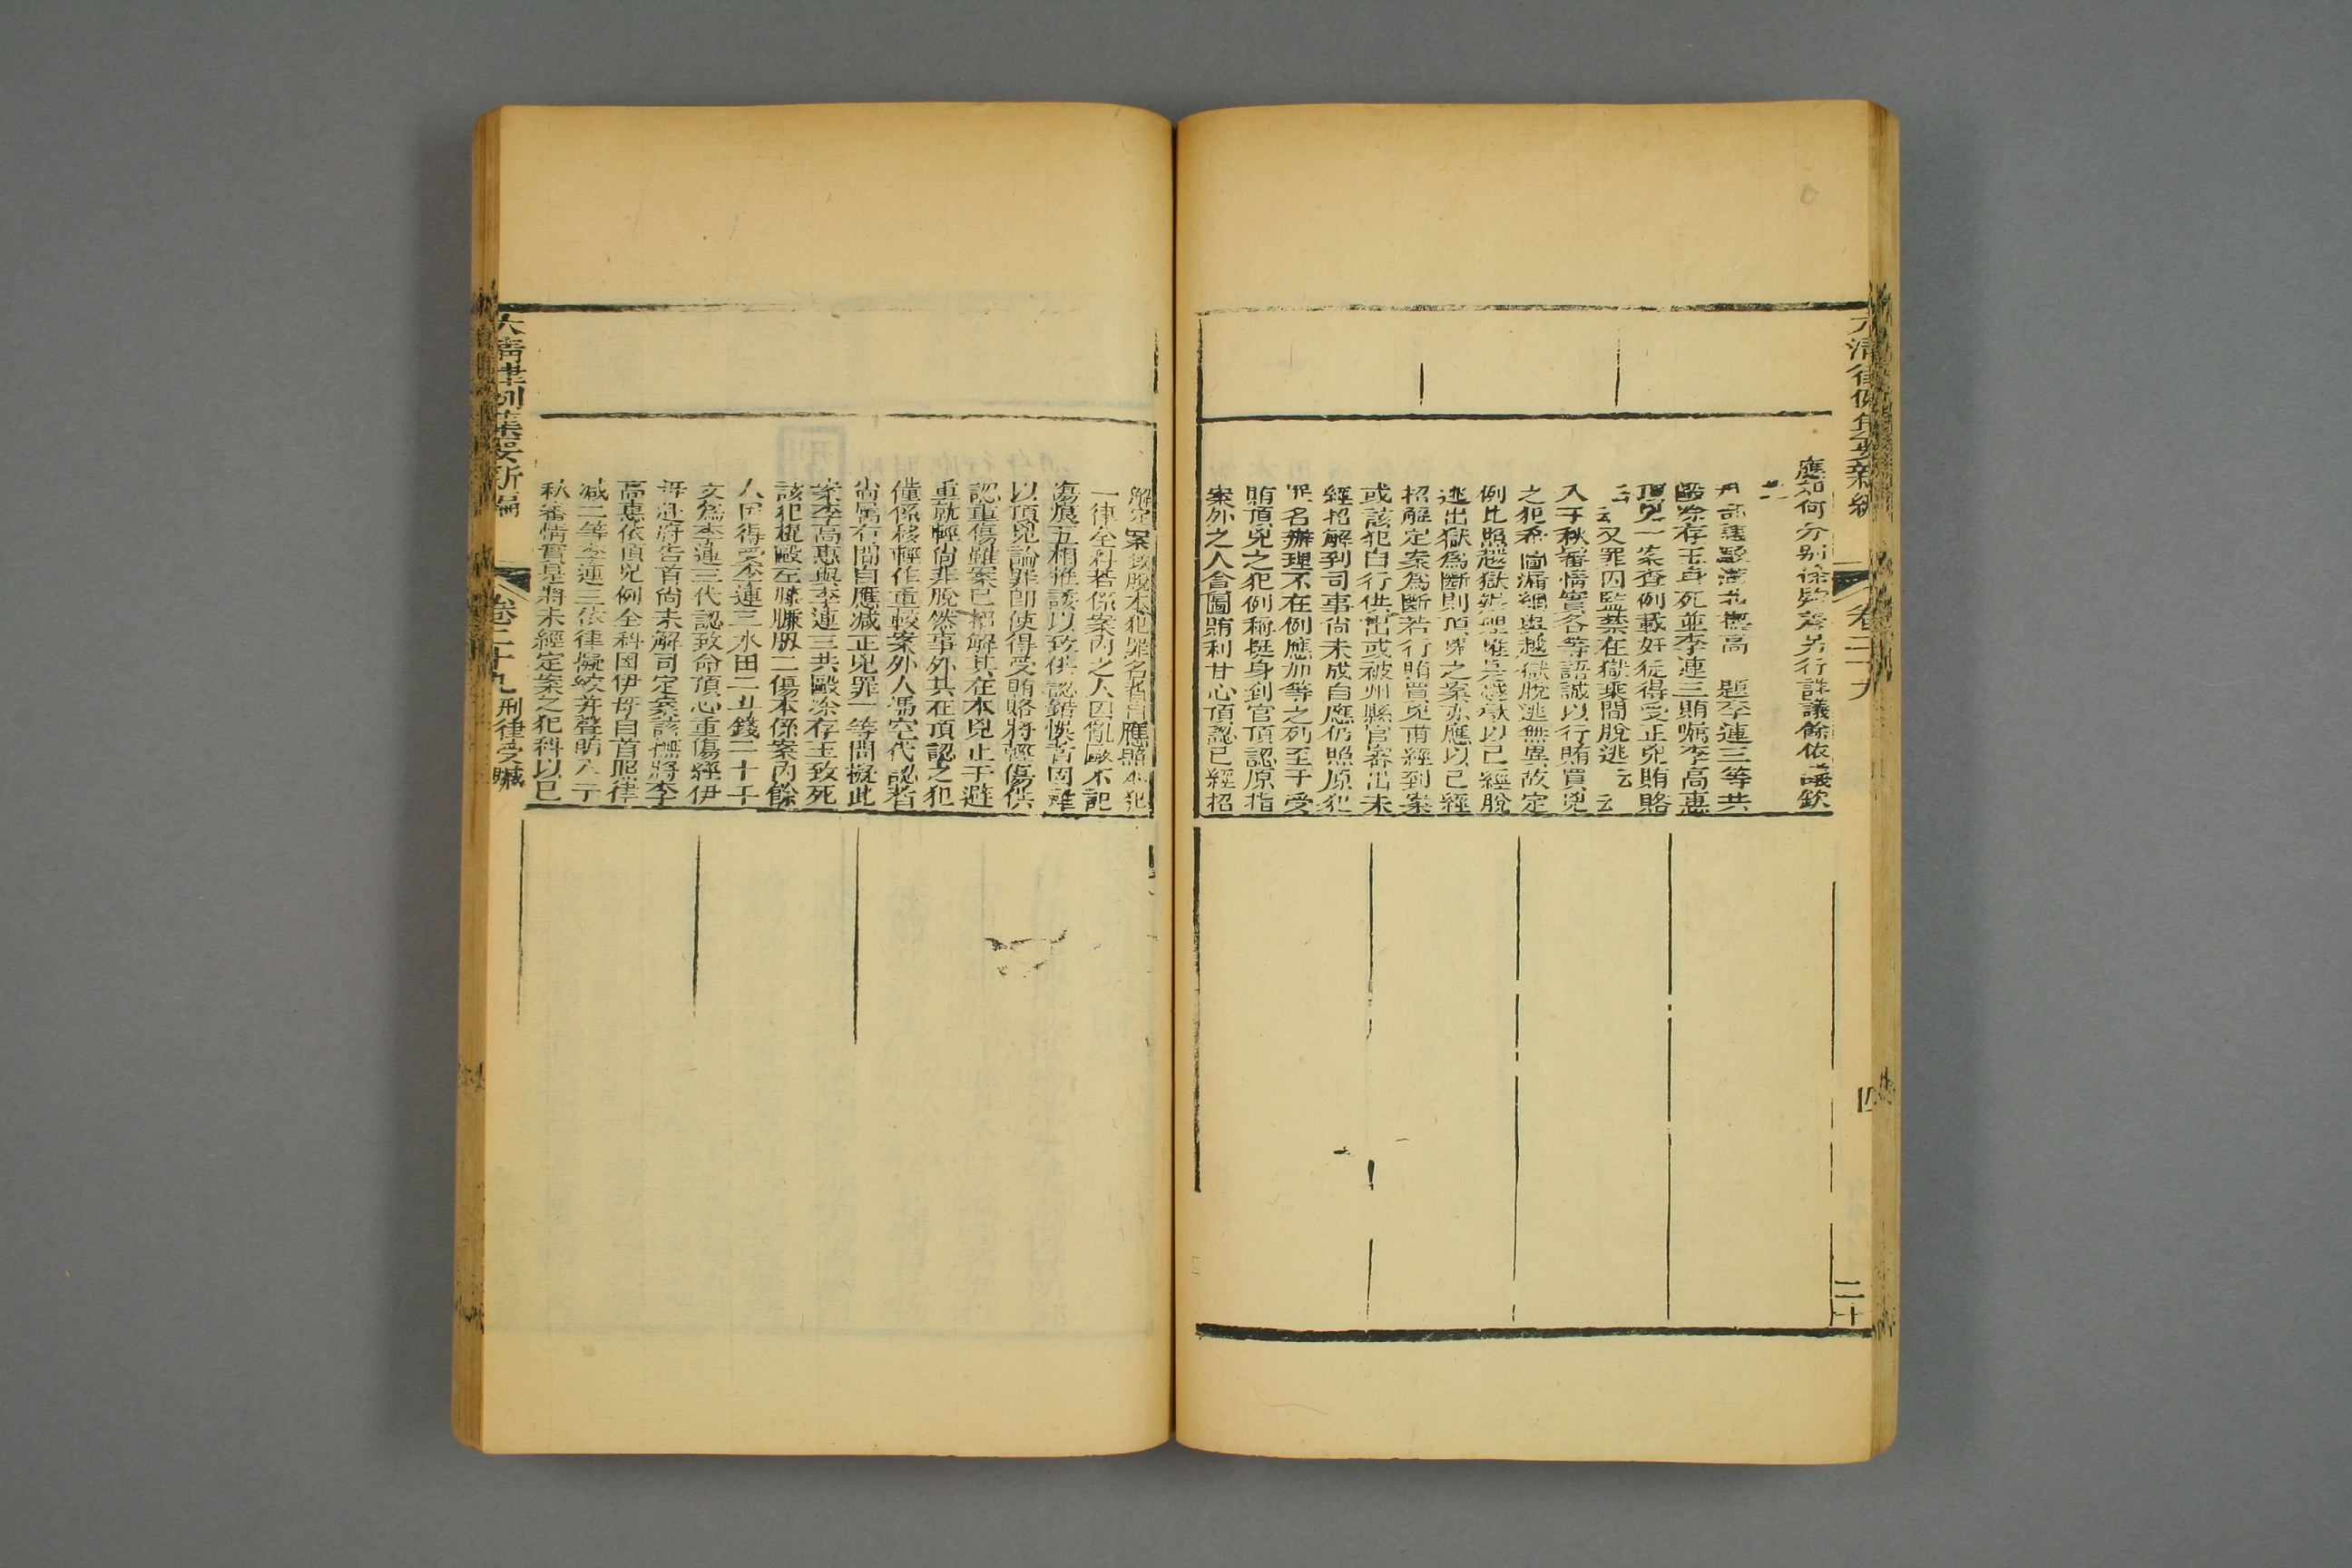 大清律例集要新編
卷二十九
應如何分別條欵齊另行詳議餘依議欽
此
題李連三等共
毆涂存王身死並李連三賄囑李高惠
頂兇一案查例載奸徒得受正兇賄賂
云云又罪囚監禁在獄乘間脫逃云云
入于秋審情實各等語誠以行賄買兇
之犯希圖漏網與越獄脫逃無異故定
例比照越獄辦理惟是越獄以已經脫
逃出獄為斷則頂兇之案亦應以已經
招解定案為斷若行賄買兇甫經到案
或該犯自行供出或被州縣官審出未
經招解到司事尚未成自應仍照原犯
罪名辦理不在例應加等之列至于受
賄頂兇之犯例稱挺身到官頂認原指
案外之人貪圖賄利甘心頂認已經招
四
二十
解定案致脫本犯罪名者自應照本犯
一律全科若係案內之人因亂毆不記
傷痕互相推諉以致供認錯悞者固難
以頂兇論罪即使得受賄賂將輕傷供
認重傷雖案已招解其在本兇止于避
重就輕尚非脫然事外其在頂認之犯
僅係移輕作重較案外人馮空代認者
尚屬有間自應減正兇罪一等問擬此
案李高惠與李連三共毆涂存王致死
該犯棍毆左膝臁肕二傷本係案內餘
人因得受李連三水田二斗錢二十千
文為李連三代認致命頂心重傷經伊
母赴府告首尚未解司定案該撫將李
高惠依頂兇例全科因伊母自首照律
減二等李連三依律擬絞并聲明入于
秋審情實是將未經定案之犯科以已
大清律例集要新編
卷二十九
刑律受贓